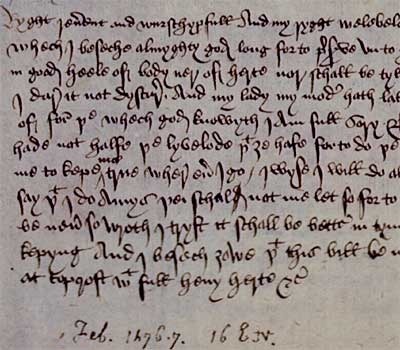 Ryght reverent and wurschypfull And my ryght welebelo
whech I beseche almyghty god long for to p̱serve vn to
in good heele of body ner of herte nor schall be tyl
I dar it not dyscur. And my lady my modr hath la
of for þe whech god knowyth I am full sory
hade not halfe þe lyvelode þt ze hafe for to do þe
me to kepe me true wher eur I go iwyse I will do al
say þt I do Amys þei schal not me let so for to
be neur so wroth I tryst it schall be bettr in tym
kepyng And I besech zowe þt this bill be n
at topcroft wt full hevy herte &c
Feb. 1476.7. 16 E. IV.